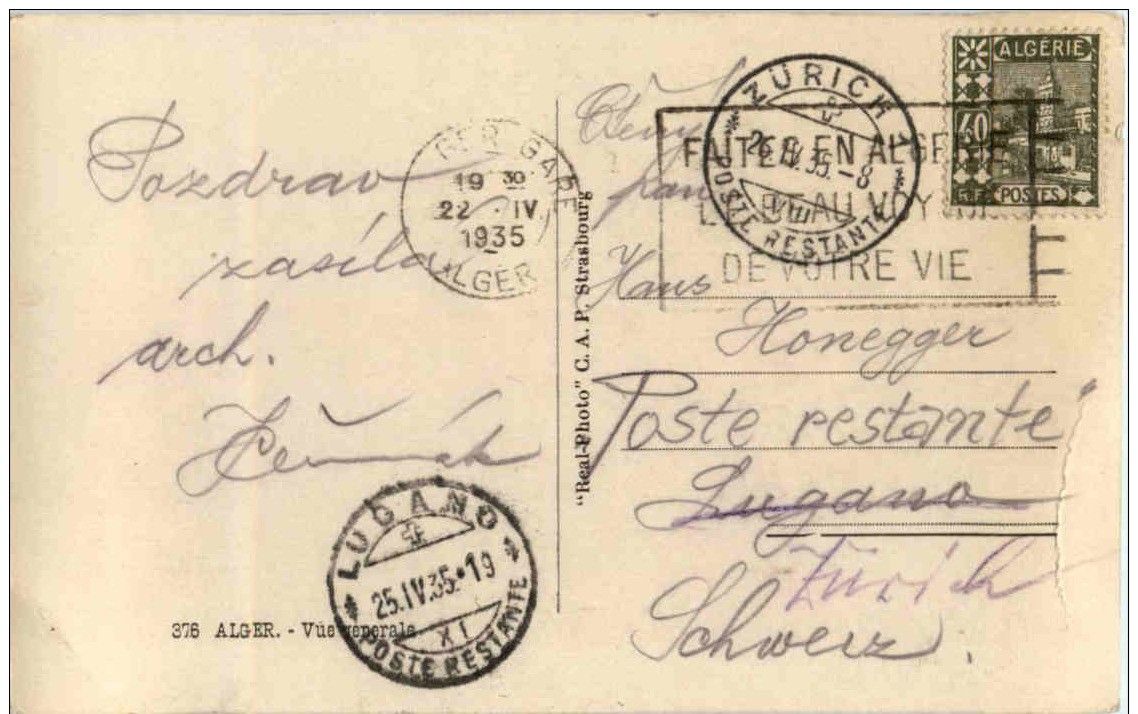 Pozdrav
zasílá
arch.
Čermák
ALGER GARE
19 30
22 · IV
1935
ALGER
pan
Hans
Honegger
Poste restante
Lugano
Zürich
Schweiz.
ZÜRICH 1
26.IV.35.-8
VIII
POSTE RESTANTE
FAITES EN ALGERIE
LE BEAU VOYAGE
DE VOTRE VIE
ALGÉRIE
40
POSTES
"Real-Photo" C. A. P. Strasbourg
LUGANO
25.IV.35.•19
XI
POSTE RESTANTE
376 ALGER. - Vue generale